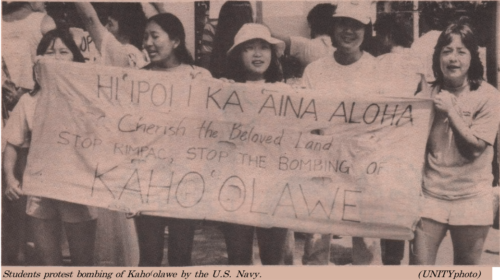 HI'IPOI I KA 'AINA ALOHA
Cherish the Beloved Land
STOP RIMPAC, STOP THE BOMBING OF
KAHO'OLAWE
Students protest bombing of Kaho'olawe by the U.S. Navy. (UNITYphoto)